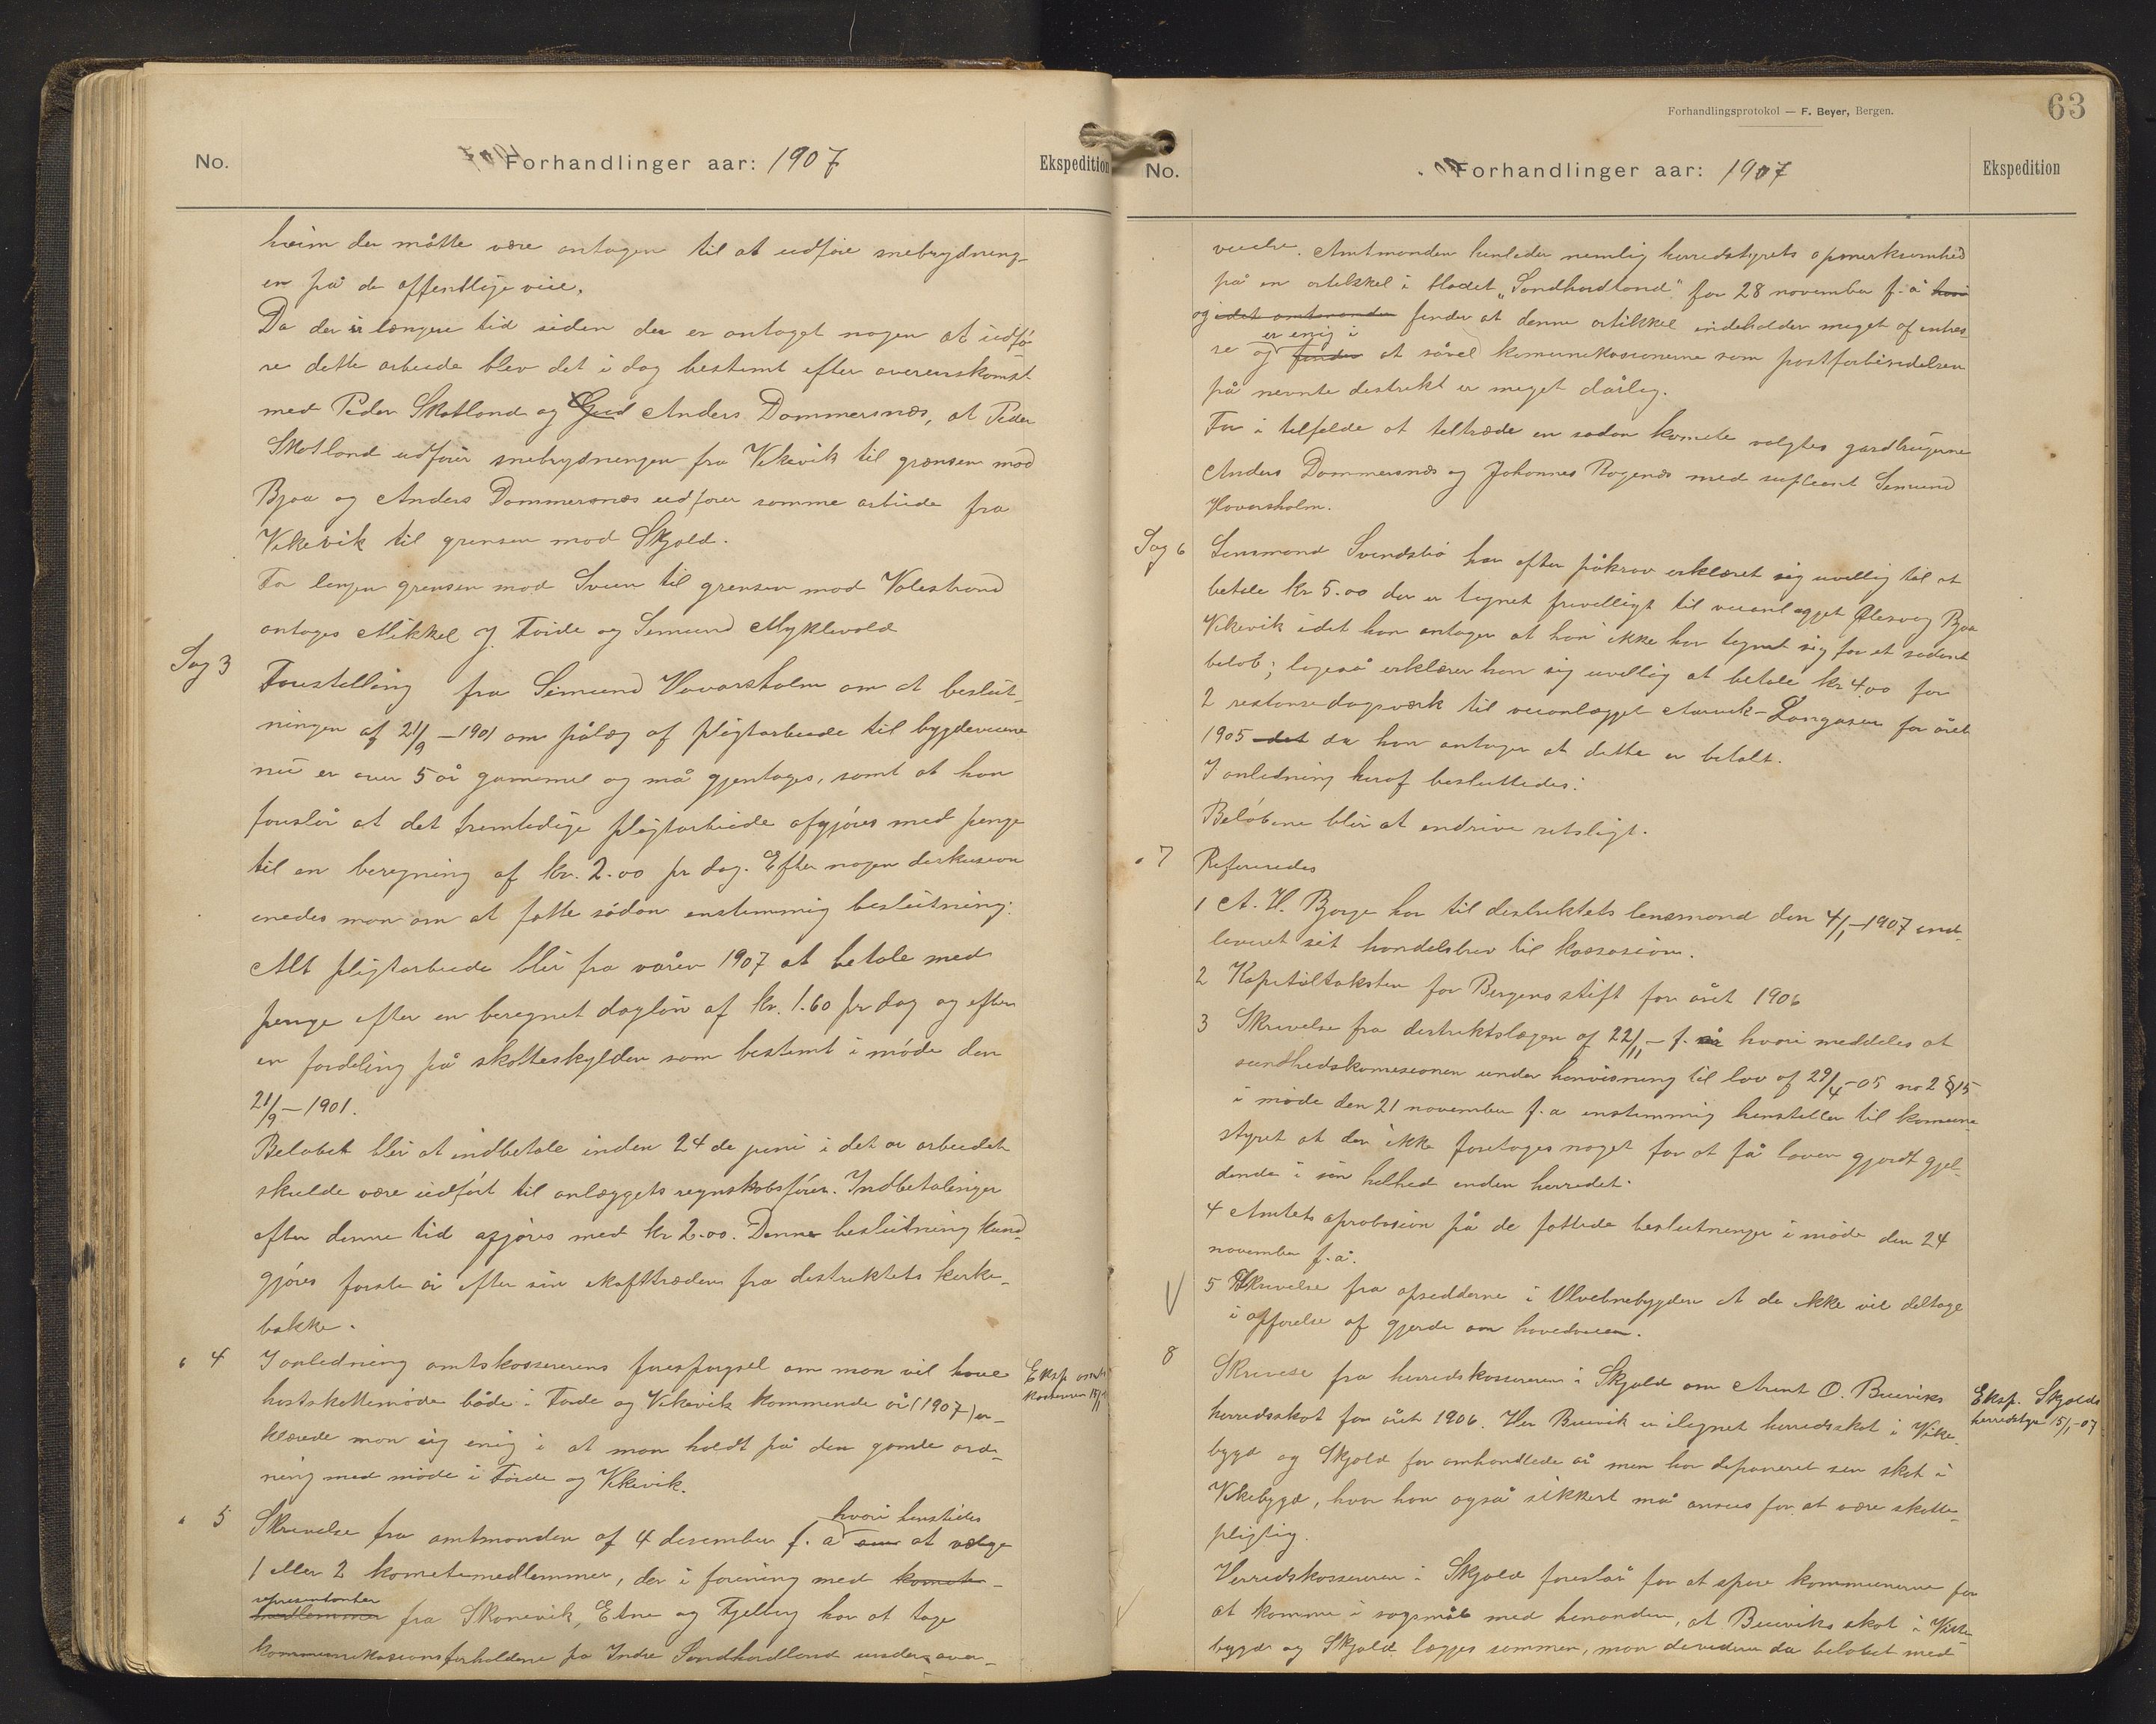 No. Forhandlinger aar: 1907 Ekspedition
hvim der måtte være antagen til at udføre snebrydning-
en på de offentlige veie.
Da der er længere tid siden der er antaget nogen at udfø-
re dette arbeide blev det i dag bestemt efter overenskomst
med Peder Skotland og Anders Dommersnæs, at Peder
Skotland udfører snebrydningen fra Vikevik til grænsen mod
Bjoa og Anders Dommersnæs udfører samme arbeide fra
Vikevik til grensen mod Skjold.
For linjen grensen mod Sveen til grensen mod Valestrand
antages Mikkel J. Førde og Simund Myklevold
Sag 3 Forestilling fra Simund Hovarsholm om at beslut-
ningen af 21/9 – 1901 om pålæg af pligtarbeide til bygdeveiene
nu er over 5 år gammel og må gjentages, samt at han
foreslår at det fremtidige pligtarbeide afgjøres med penge
til en beregning af kr. 2.00 pr dag. Efter nogen diskusion
enedes man om at fatte sådan enstemmig beslutning:
Alt pligtarbeide blir fra våren 1907 at betale med
penge efter en beregnet dagløn af kr. 1.60 pr dag og efter
en fordeling på skatteskylden som bestemt i møde den
21/9 – 1901.
Beløbet blir at indbetale inden 24 de juni i det år arbeidet
skulde være udført til anlæggets regnskabsfører. Indbetalinger
efter denne tid afgjøres med kr 2.00. Denne beslutning kund-
gjøres første år efter sin ikrafttræden fra distriktets kirke-
bakke.
" 4 I anledning amtskassererens forespørgsel om man vil have
høstskattemøde både i Førde og Vikevik kommende år (1907) er-
klærede man sig enig i at man holdt på den gamle ord-
ning med møde i Førde og Vikevik.
Eksp amts
kasserer 15/1
" 5 Skrivelse fra amtmanden af 4 desember f. å hvori henstilles om at vælge
1 eller 2 kometemedlemmer, der i forening med komete-
medlemmer representanter fra Skånevik, Etne og Fjelberg har at tage
kommunikasionsforholdene på Indre Søndhordland under over-
Forhandlingsprotokol — F. Beyer, Bergen.
63
No. Forhandlinger aar: 1907 Ekspedition
veielse. Amtmanden henleder nemlig herredstyrets opmerksomhed
på en artikkel i bladet „Søndhordland" for 28 november f. å hvori
og idet amtmanden finder at denne artikkel indeholder meget af intres-
se og finder er enig i at såvel komunikasionerne som postforbindelsen
på nevnte distrikt er meget dårlig.
For i tilfelde at tiltræde en sådan komite valgtes gårdbrugerne
Anders Dommersnæs og Johannes Røgenæs med supleant Simund
Hovarsholm.
Sag 6 Lensmand Svendsbø har efter påkrav erklæret sig uvillig til at
betale kr 5.00 der er tegnet frivilligt til veianlægget Ølesvåg Bjoa
Vikevik idet han antager at han ikke har tegnet sig for et sådant
beløb; ligeså erklærer han sig uvillig at betale kr 4.00 for
2 restansedagsværk til veianlægget Aarvik–Langåsen for året
1905 det da han antager at dette er betalt.
I anledning heraf besluttedes:
Beløbene blir at inddrive retsligt.
" 7 Refereredes
1 A. H. Bjorge har til distriktets lensmand den 4/1–1907 ind-
leveret sit handelsbrev til kassasion.
2 Kapitaltaksten for Bergens stift for året 1906
3 Skrivelse fra distriktslægen af 22/11 – f. år hvori meddeles at
sundhedskomisionen under henvisning til lov af 29/4–05 no 2 § 15
i møde den 21 november f. a enstemmig henstiller til komune-
styret at der ikke foretages noget for at få loven gjordt gjel-
dende i sin helhed inden herredet.
4 Amtets aprobasion på de fattede beslutninger i møde den 24
november f. å.
5 Skrivelse fra opsidderne i Ulvebnebygden at de ikke vil deltage
i opførelse af gjerde om hovedveien.
8 Skrivelse fra herredskassereren i Skjold om Arent O. Bueviks
herredsskat for året 1906. Her Buevik er ilignet herredsskat i Vike-
bygd og Skjold for omhandlede år men har deponeret sin skat i
Vikebygd, hvor han også sikkert må ansees for at være skatte-
pligtig.
Eksp. Skjolds
herredstyre 15/1–07
Herredskassereren i Skjold foreslår for at spare kommunerne for
at komme i sogsmål med hinanden, at Bueviks skat i Vike-
bygd og Skjold lægges sammen, man dividere da beløbet med